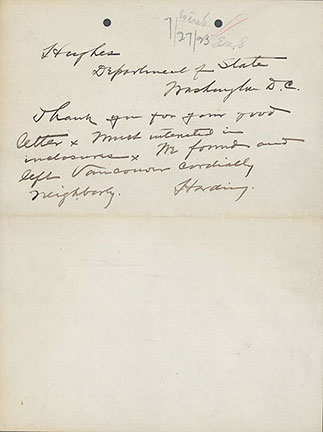 7/27/23
Hughes
Department of State
Washington D.C.
Thank you for your good
letter x Must interested in
inclosures x We found and
left Vancouver cordially
neighborly. Harding.